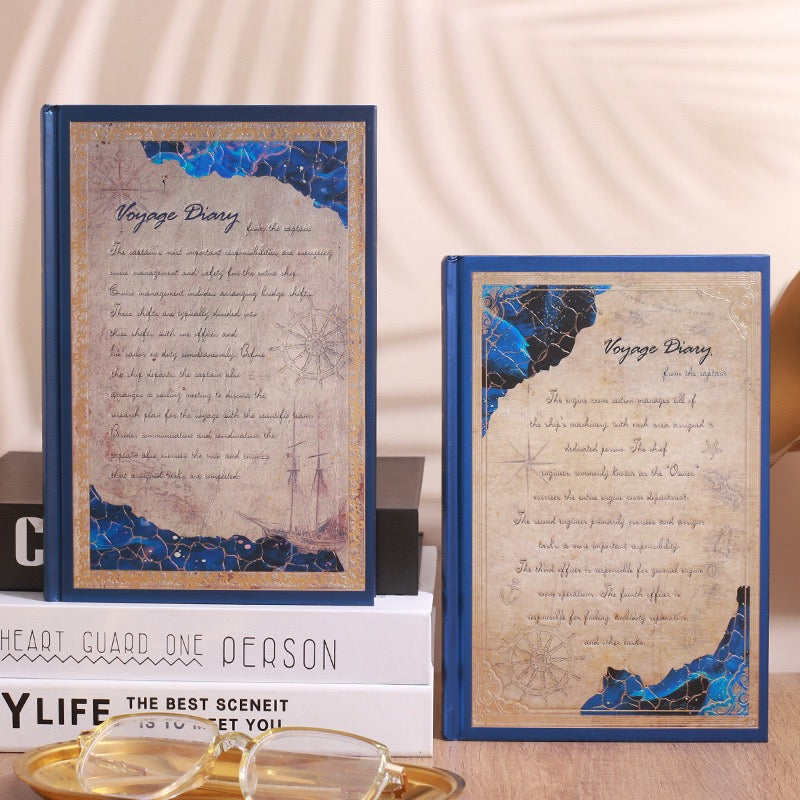 Voyage Diary
from the captain
The captain's most important responsibilities are overseeing
cruise management and safety for the entire ship.
Cruise management includes arranging bridge shifts.
These shifts are typically divided into
these shifts with one officer and
one sailor on duty simultaneously. Before
the ship departs the captain also
arranges a sailing meeting to discuss the
research plan for the voyage with the scientific team.
Besides communication and coordination the
captain also oversees the crew and ensures
that assigned tasks are completed.
Voyage Diary
from the captain
The engine room section manages all of
the ship's machinery, with each area assigned a
dedicated person. The chief
engineer commonly known as the "Owner"
oversees the entire engine room department.
The second engineer primarily oversees and assigns
tasks, a most important responsibility.
The third officer is responsible for general engine
room operations. The fourth officer is
responsible for fueling,
and other tasks.
C
HEART GUARD ONE PERSON
YLIFE THE BEST SCENEIT
IS TO MEET YOU